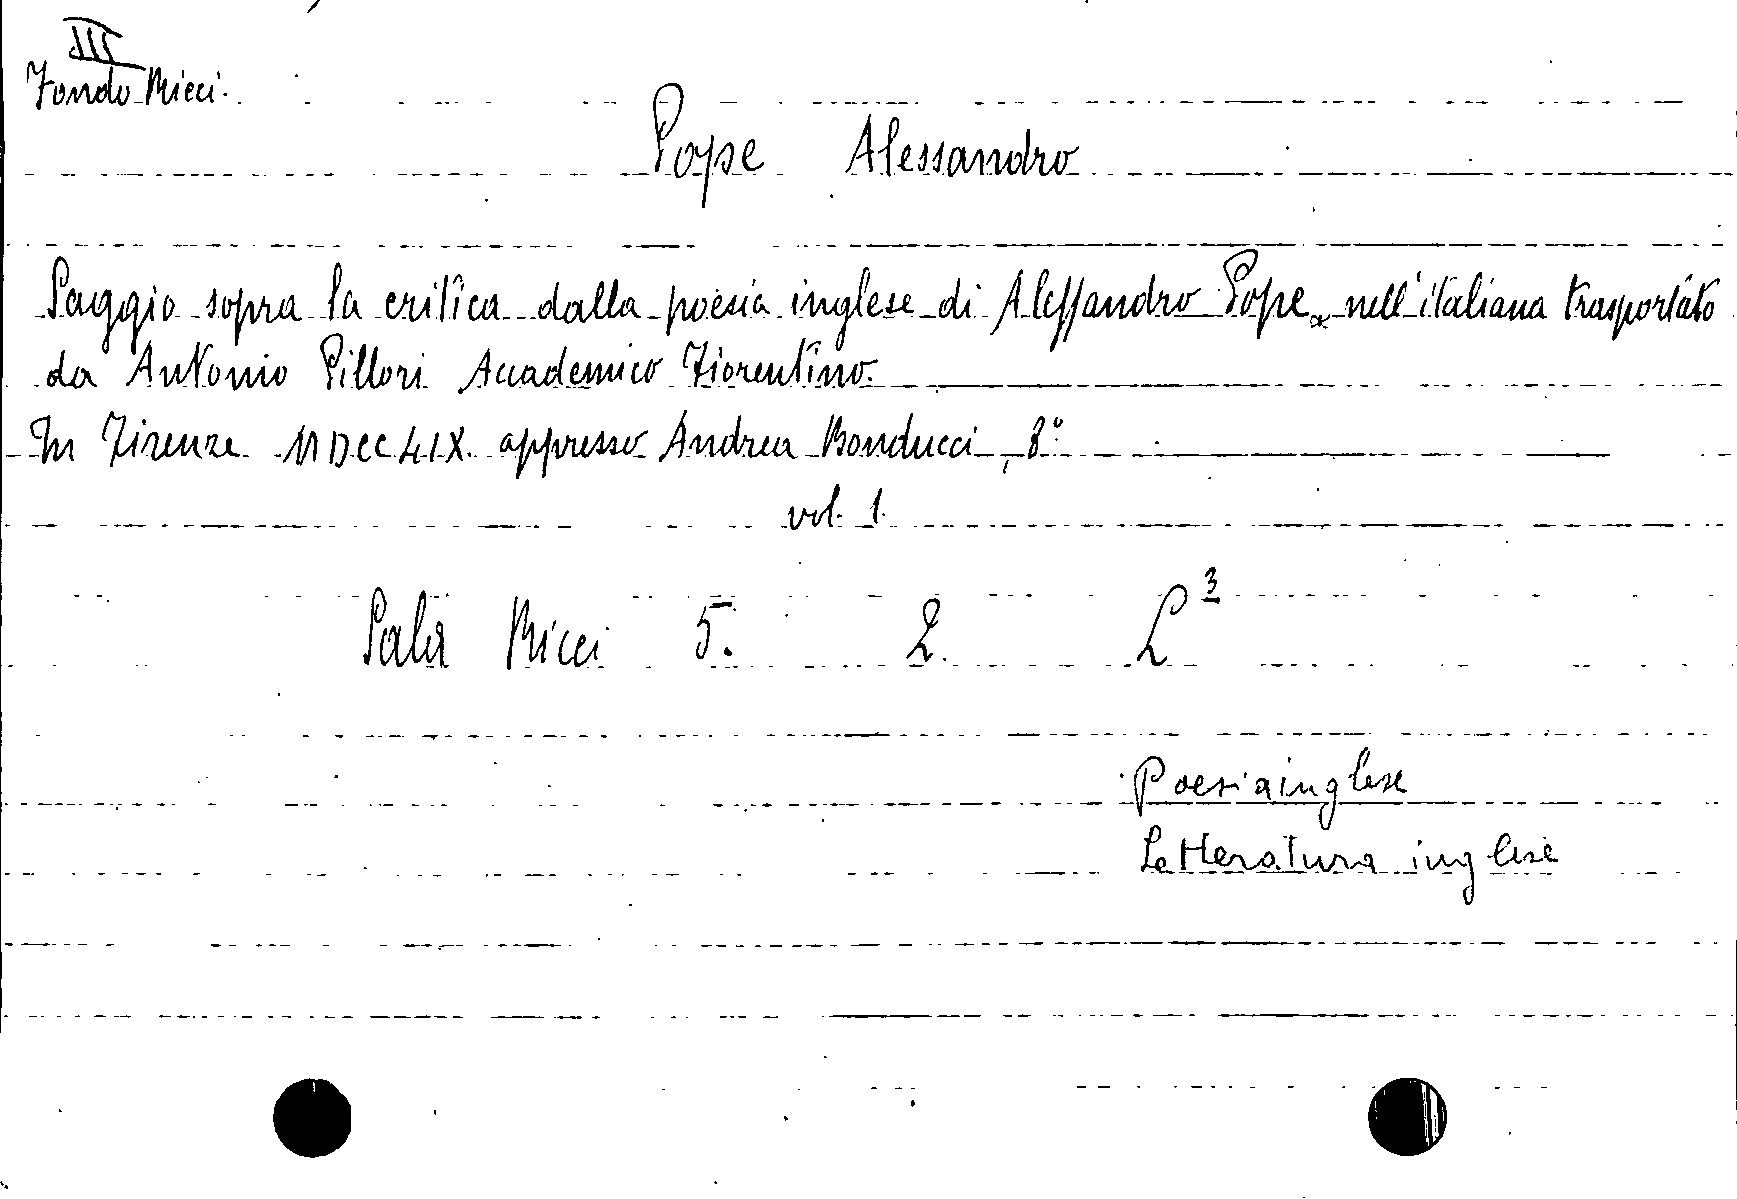 III
Fondo Ricci.
Pope Alessandro
Saggio sopra la critica dalla poesia inglese di Alessandro Pope nell'italiana trasportato
da Antonio Pillori Accademico Fiorentino.
In Firenze MDCCLIX. appresso Andrea Bonducci, 8°
vol. 1.
Sala Ricci 5. 2. L³
Poesia inglese
Letteratura inglese